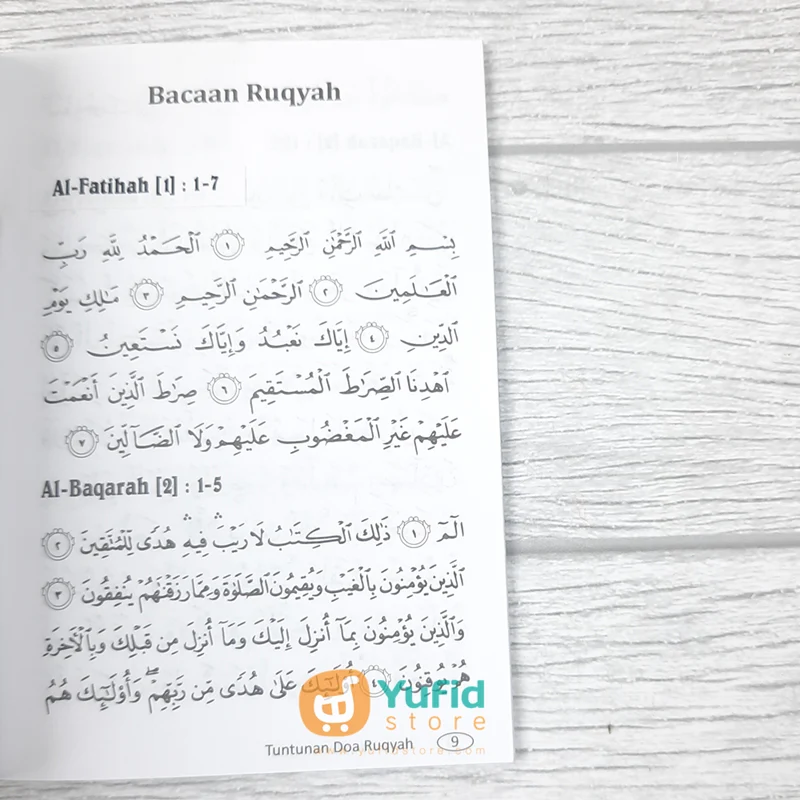 Bacaan Ruqyah
Al-Fatihah [1] : 1-7
بِسْمِ ٱللَّهِ ٱلرَّحْمَٰنِ ٱلرَّحِيمِ ١ ٱلْحَمْدُ لِلَّهِ رَبِّ
ٱلْعَٰلَمِينَ ٢ ٱلرَّحْمَٰنِ ٱلرَّحِيمِ ٣ مَٰلِكِ يَوْمِ
ٱلدِّينِ ٤ إِيَّاكَ نَعْبُدُ وَإِيَّاكَ نَسْتَعِينُ ٥
ٱهْدِنَا ٱلصِّرَٰطَ ٱلْمُسْتَقِيمَ ٦ صِرَٰطَ ٱلَّذِينَ أَنْعَمْتَ
عَلَيْهِمْ غَيْرِ ٱلْمَغْضُوبِ عَلَيْهِمْ وَلَا ٱلضَّآلِّينَ ٧
Al-Baqarah [2] : 1-5
الٓمٓ ١ ذَٰلِكَ ٱلْكِتَٰبُ لَا رَيْبَ ۛ فِيهِ ۛ هُدًى لِّلْمُتَّقِينَ ٢
ٱلَّذِينَ يُؤْمِنُونَ بِٱلْغَيْبِ وَيُقِيمُونَ ٱلصَّلَوٰةَ وَمِمَّا رَزَقْنَٰهُمْ يُنفِقُونَ ٣
وَٱلَّذِينَ يُؤْمِنُونَ بِمَآ أُنزِلَ إِلَيْكَ وَمَآ أُنزِلَ مِن قَبْلِكَ وَبِٱلْءَاخِرَةِ
هُمْ يُوقِنُونَ ٤ أُو۟لَٰٓئِكَ عَلَىٰ هُدًى مِّن رَّبِّهِمْ ۖ وَأُو۟لَٰٓئِكَ هُمُ
Yufid
store
www.yufidstore.com
Tuntunan Doa Ruqyah 9